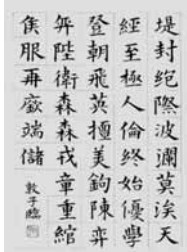 堤封絶際波瀾莫涘天
經至極人倫終始優學
登朝飛英擅美鉤陳弈
弈陛衛森森戎章重綰
侯服再廞端儲
敦子臨